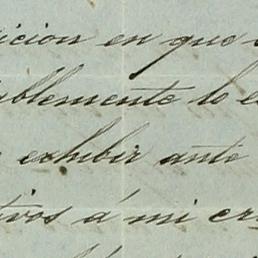 icion en que
ablemente lo e
exhibir ante
tivos á mi cr